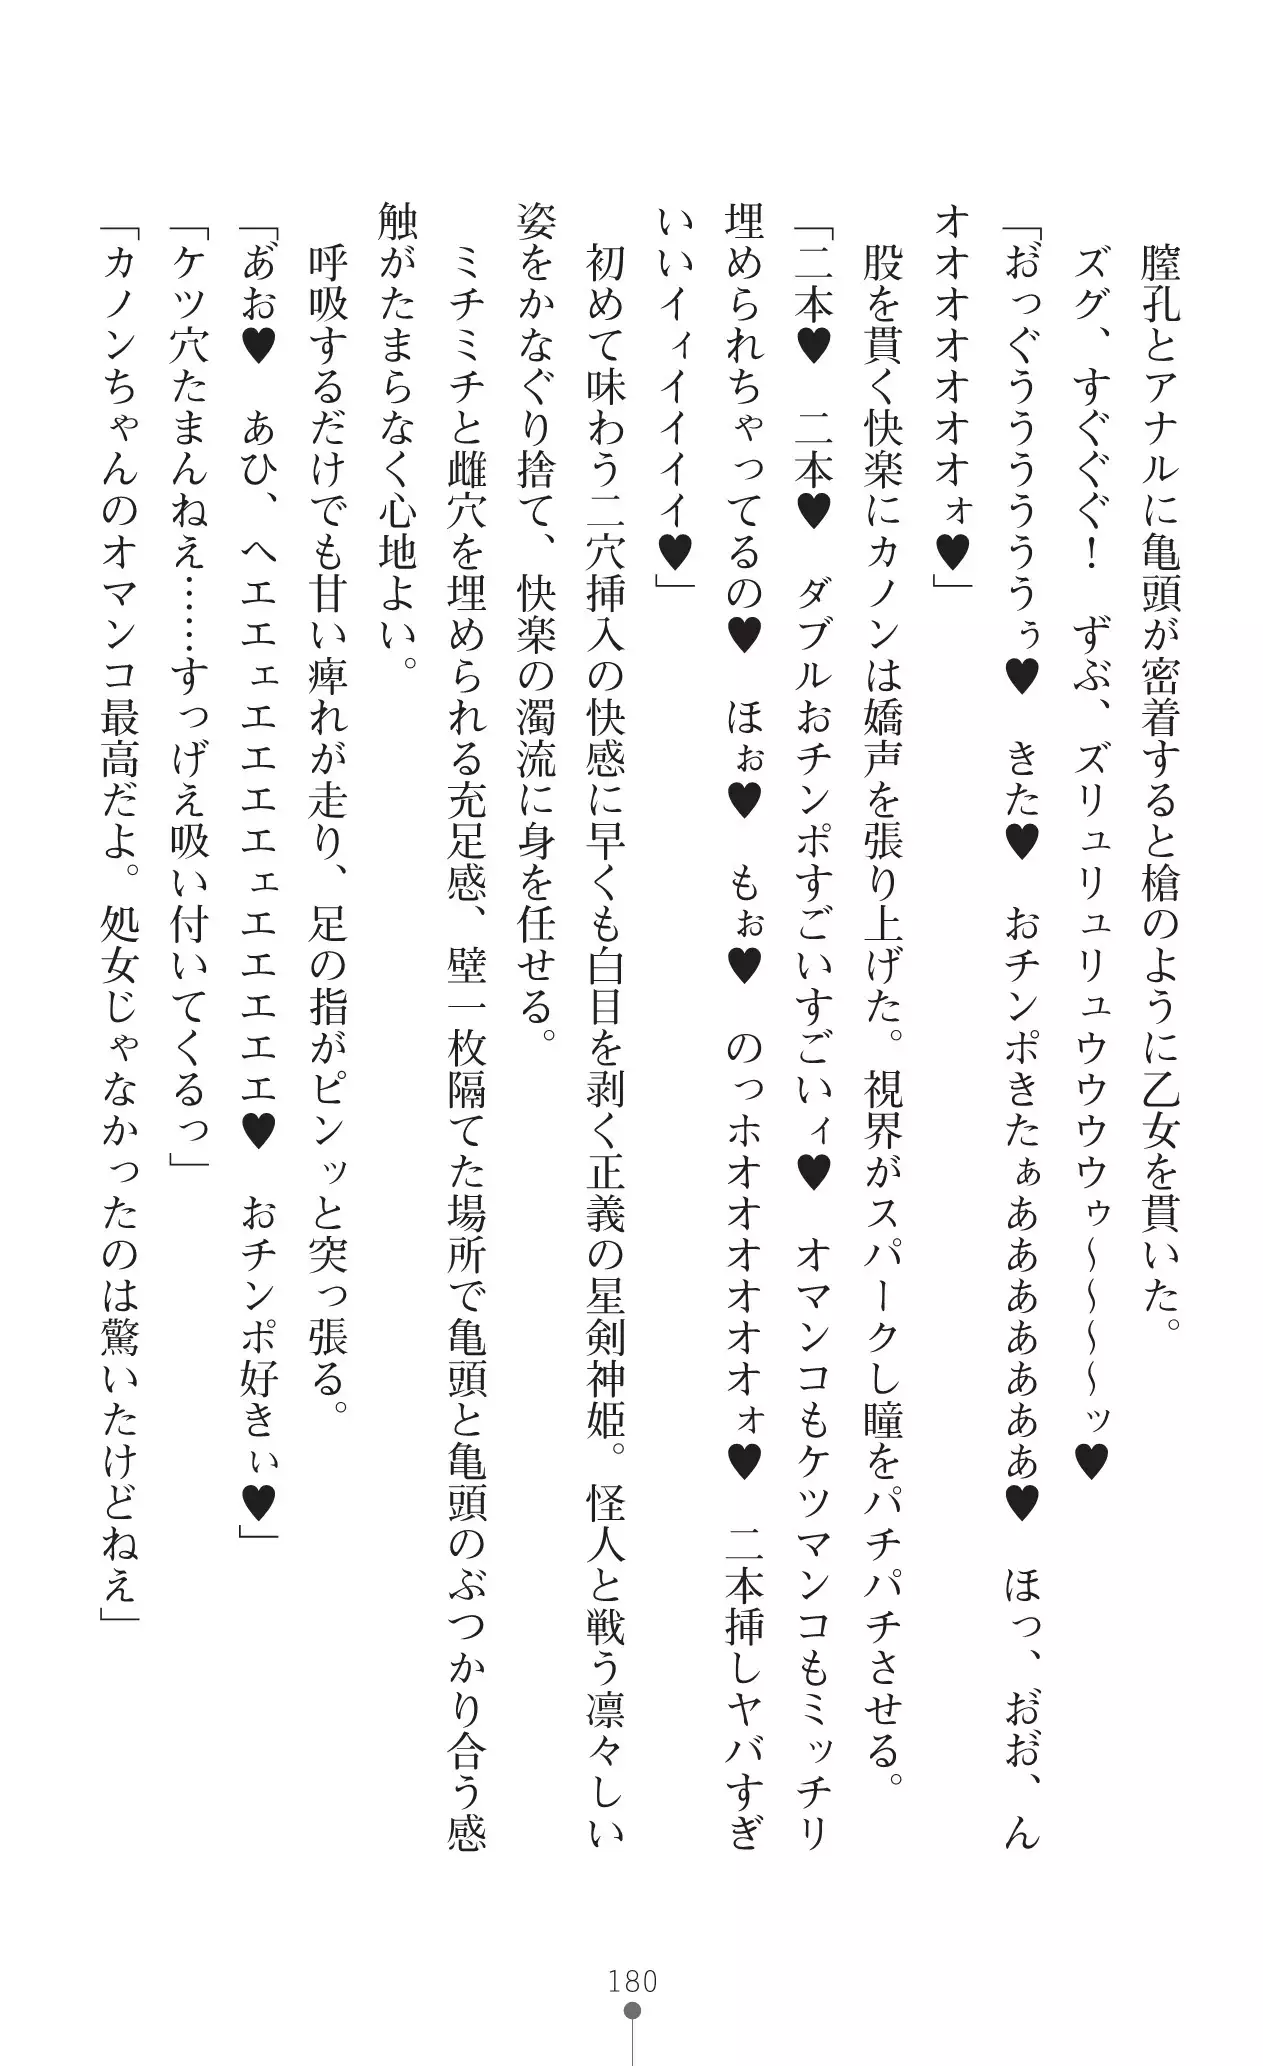 膣孔とアナルに亀頭が密着すると槍のように乙女を貫いた。
ズグ、すぐぐぐ！　ずぶ、ズリュリュリュウウウウゥ～～～～ッ♥
「お゛っぐうううううぅ♥　きた♥　おチンポきたぁあああああああ♥　ほっ、お゛お゛、ん
オオオオオオオォ♥」
股を貫く快楽にカノンは嬌声を張り上げた。視界がスパークし瞳をパチパチさせる。
「二本♥　二本♥　ダブルおチンポすごいすごいィ♥　オマンコもケツマンコもミッチリ
埋められちゃってるの♥　ほぉ♥　もぉ♥　のっホオオオオオオォ♥　二本挿しヤバすぎ
いいイィイイイイ♥」
初めて味わう二穴挿入の快感に早くも白目を剥く正義の星剣神姫。怪人と戦う凛々しい
姿をかなぐり捨て、快楽の濁流に身を任せる。
ミチミチと雌穴を埋められる充足感、壁一枚隔てた場所で亀頭と亀頭のぶつかり合う感
触がたまらなく心地よい。
呼吸するだけでも甘い痺れが走り、足の指がピンッと突っ張る。
「あ゛お♥　あひ、ヘエエェエエエエェエエエエエ♥　おチンポ好きぃ♥」
「ケツ穴たまんねえ……すっげえ吸い付いてくるっ」
「カノンちゃんのオマンコ最高だよ。処女じゃなかったのは驚いたけどねえ」
180